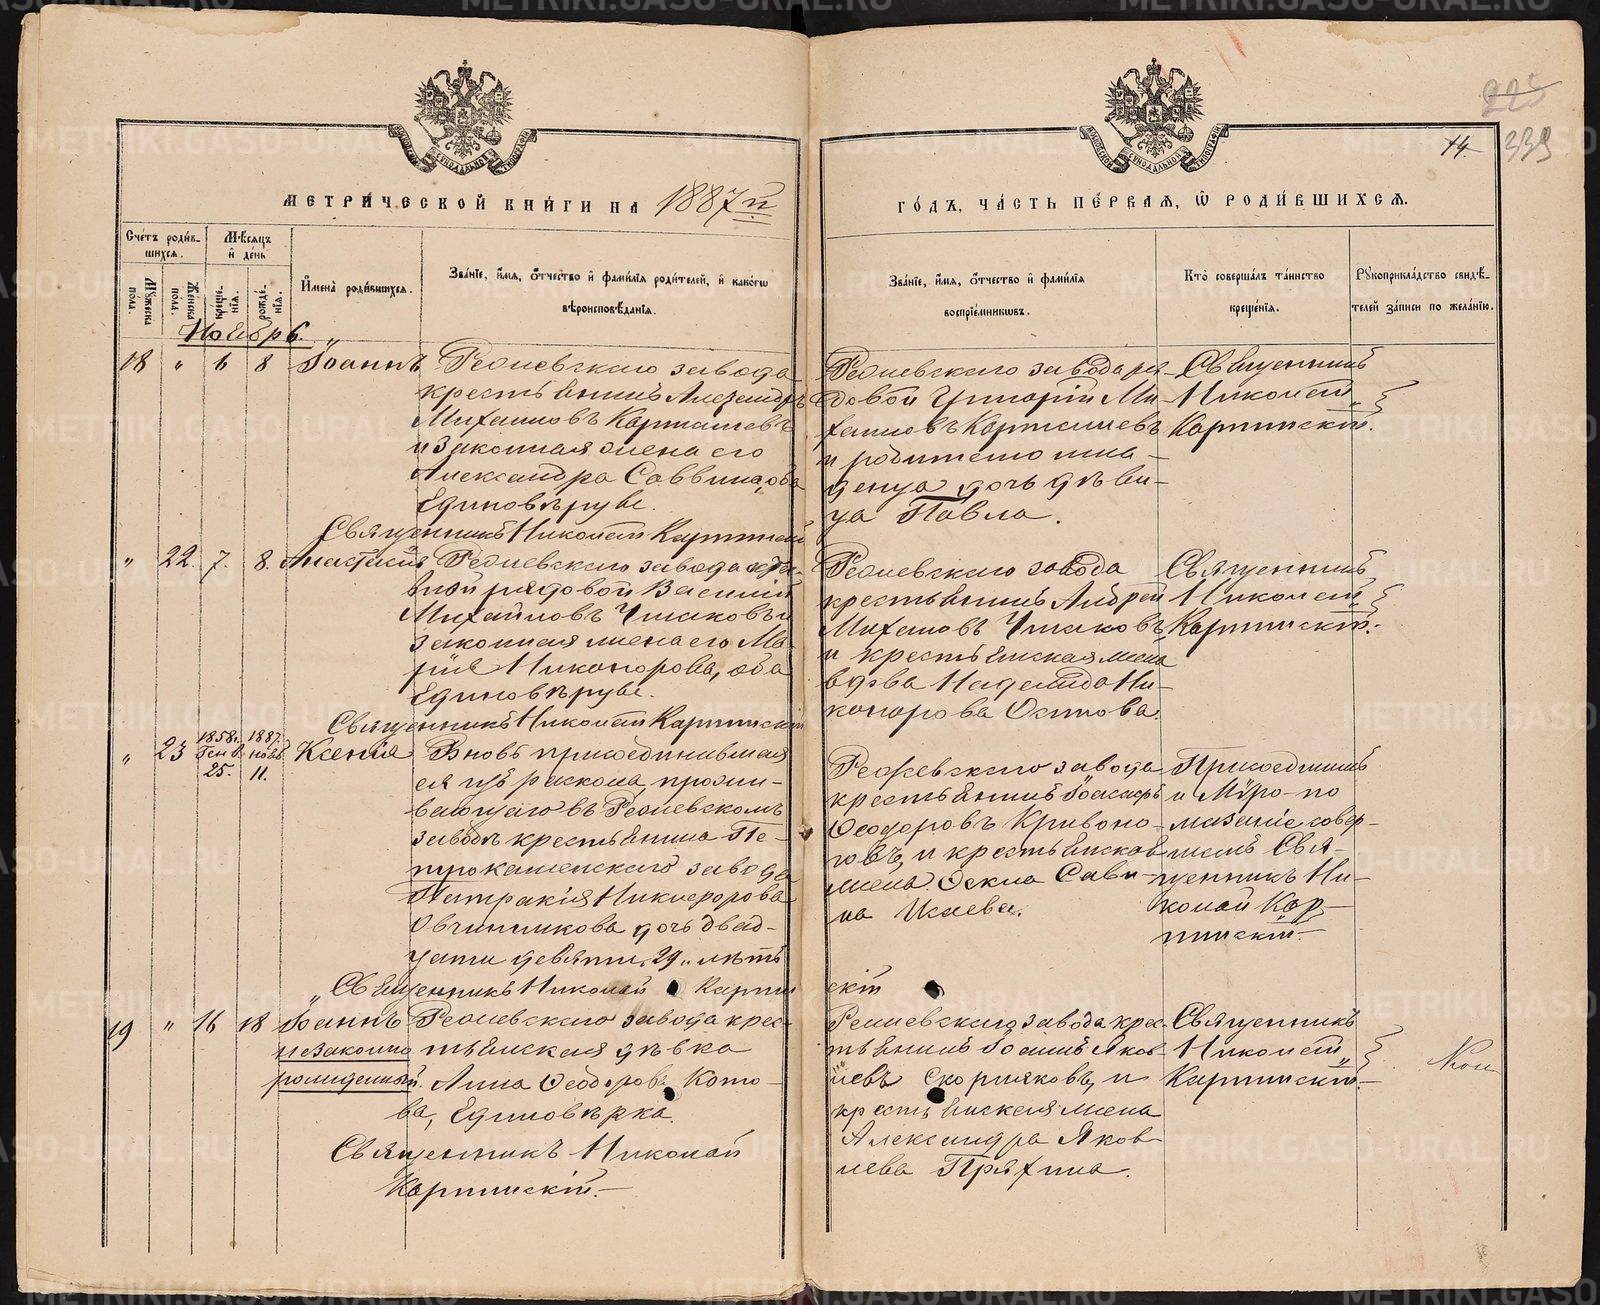 225
14.
339
МЕТРИ́ЧЕСКОЙ КНИ́ГИ НА 1887й
ГО́ДЪ, ЧА́СТЬ ПЕ́РВАЯ, Ѿ РОДИ́ВШИХСЯ.
Сче́тъ роди́в-
шихся.
Мѣсяцъ
и҆ де́нь
Мꙋжеска
полъ.
Женска
полъ.
креще́-
нія.
рожде́-
нія.
И҆мена̀ роди́вшихся.
Зва́ніе, и҆́мя, ѻ҆́тчество и҆ фами́лія роди́телей, и҆ како́гѡ
вѣроисповѣ́данія.
Зва́ніе, и҆́мя, ѻ҆́тчество и҆ фами́лія
воспріе́мникѡвъ.
Кто̀ соверша́лъ та́инство
креще́нія.
Рꙋкоприкла́дство свидѣ́-
телей за́писи по жела́нію.
Ноябрь.
18 " 6 8 Іоаннъ
Режевскаго завода
крестьянинъ Александръ
Михаиловъ Карташевъ
и законная жена его
Александра Саввина, оба
Единовѣрцы.
Священникъ Николай Карпинскій
Режевскаго завода ря-
довой Григорій Ми-
хаиловъ Карташевъ
и родителю мла-
денца дочь дѣви-
ца Павла.
Священникъ
Николай
Карпинскій.
" 22. 7. 8. Анастасія
Режевскаго завода
рядовой Василій
Михайловъ Чушковъ и
законная жена его Ма-
рія Никонорова, оба
Единовѣрцы.
Священникъ Николай Карпинскій
Режевскаго завода
крестьянинъ Андрей
Михаиловъ Чушковъ
и крестьянская жена
вдова Надежда Ни-
конорова Осипова.
Священникъ
Николай
Карпинскій.
" 23 1858г. Генв. 25. 1887. нояб. 11. Ксенія
Вновь присоединившая-
ся изъ раскола, прожи-
вающаго въ Режевскомъ
заводѣ крестьянина Пе-
трокаменскаго завода
Патракія Никифорова
Овчинникова дочь двад-
цати девяти "29" лѣтъ
Священникъ Николай Карпин
скій
Режевскаго завода
крестьянинъ Іоасафъ
Ѳеодоровъ Кривоно-
говъ, и крестьянская
жена Ѳекла Сави-
на Исаева.
Присоединилъ
и Мѵро-по
мазаніе совер-
шилъ Свя-
щенникъ Ни-
колай Кар-
пинскій.
19 " 16 18 Іоаннъ
незаконно
рожденный.
Режевскаго завода крес-
тьянская дѣвка
Анна Ѳеодорова Кото-
ва, Единовѣрка.
Священникъ Николай
Карпинскій.
Режевскаго завода крес-
тьянинъ Іоаннъ Яков-
левъ Скорняковъ, и
крестьянская жена
Александра Яков-
лева Пряхина.
Священникъ
Николай
Карпинскій.